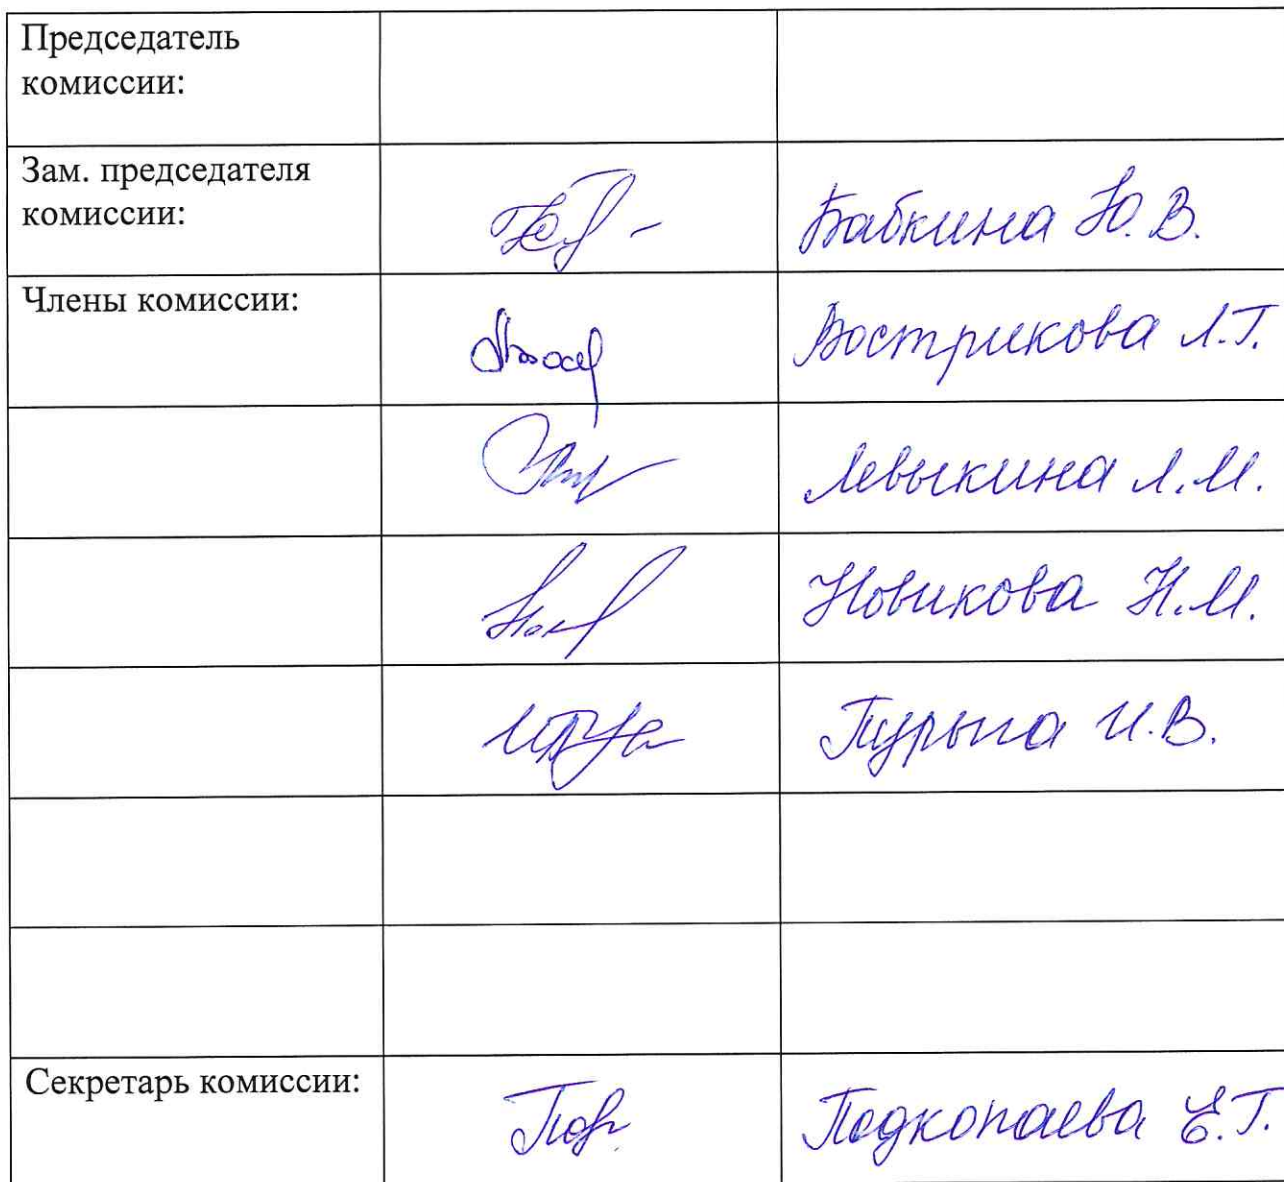 Председатель
комиссии:
Зам. председателя
комиссии:
Бабкина Ю. В.
Члены комиссии:
Вострикова Л.Г.
Левыкина Л.М.
Новикова Н.М.
И.В.
Секретарь комиссии:
Подкопаева Е.Г.